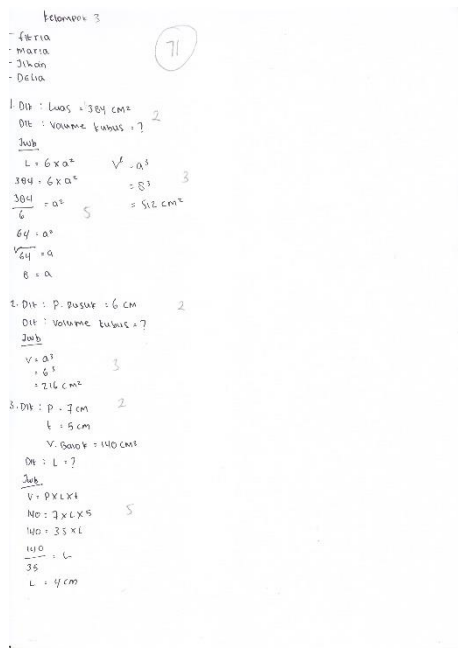 Kelompok 3
- fitria
- Maria
- Jihan
- Delia
71
1. Dit : Luas = 384 cm² 2
Dit : Volume kubus = ?
Jwb
L = 6 x a² V = a³
384 = 6 x a² = 8³ 3
384/6 = a² = 512 cm² 5
64 = a²
√64 = a
8 = a
2. Dit : P. Rusuk = 6 cm 2
Dit : Volume kubus = ?
Jwb
V = a³
= 6³ 3
= 216 cm²
3. Dit : P = 7 cm 2
t = 5 cm
V. Balok = 140 cm³
Dit : L = ?
Jwb
V = P x L x t
140 = 7 x L x 5 5
140 = 35 x L
140/35 = L
L = 4 cm